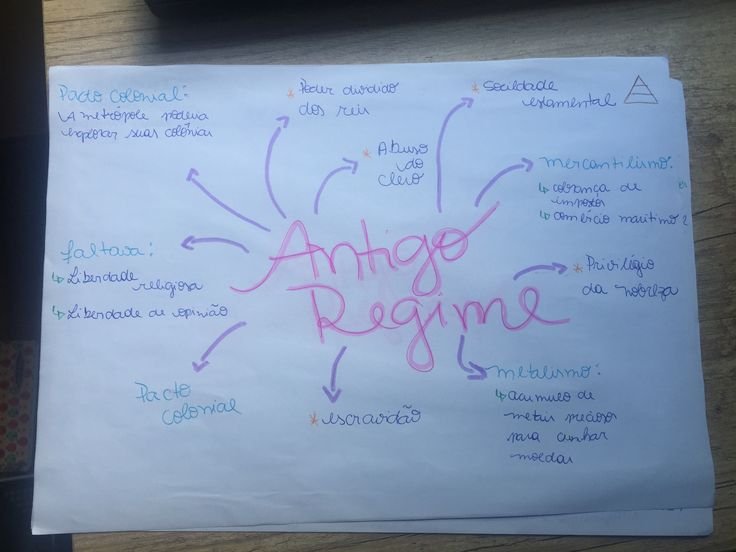 Pacto colonial:
A metrópole poderia
explorar suas colônias
* Poder dividido
dos reis
* Abuso
do
clero
* Sociedade
estamental
mercantilismo:
↳ cobrança de
impostos
↳ comércio marítimo
faltava:
↳ Liberdade
religiosa
↳ Liberdade de opinião
Antigo
Regime
* Privilégio
da nobreza
Pacto
colonial
* escravidão
metalismo:
↳ acumulo de
metais preciosos
para cunhar
moedas